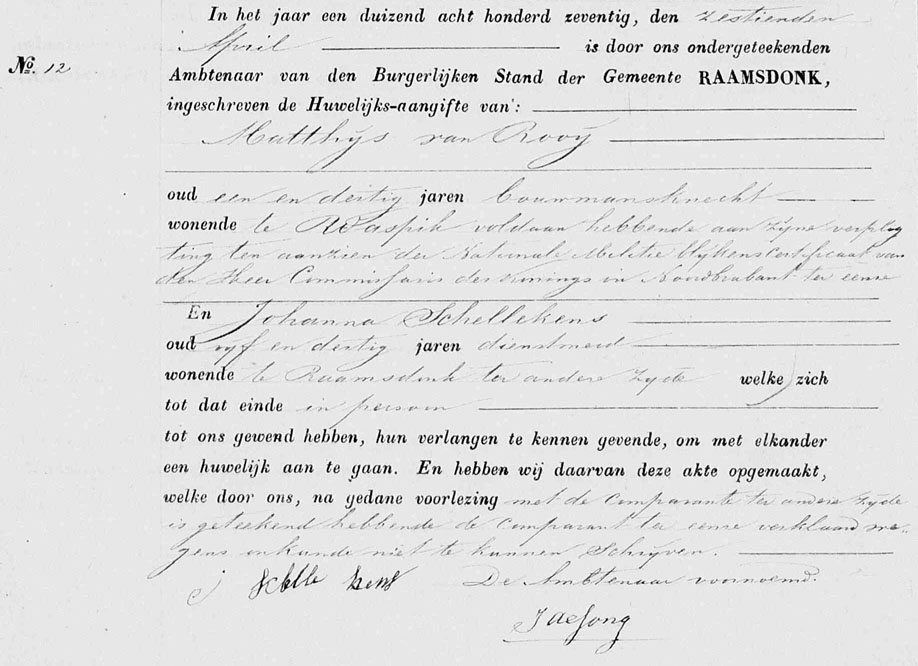 In het jaar een duizend acht honderd zeventig, den zestienden
April is door ons ondergeteekenden
No. 12
Ambtenaar van den Burgerlijken Stand der Gemeente RAAMSDONK,
ingeschreven de Huwelijks-aangifte van:
Matthijs van Rooij
oud een en dertig jaren bouwmansknecht
wonende te Waspik voldaan hebbende aan zijne verplig
ting ten aanzien der Nationale Militie blijkens certificaat van
den Heer Commissaris des Konings in Noordbrabant ter eenre
En Johanna Schellekens
oud vyf en dertig jaren dienstmeid
wonende te Raamsdonk ter andere zyde welke zich
tot dat einde in persoon
tot ons gewend hebben, hun verlangen te kennen gevende, om met elkander
een huwelijk aan te gaan. En hebben wij daarvan deze akte opgemaakt,
welke door ons, na gedane voorlezing met de comparante ter andere zyde
is geteekend hebbende de comparant ter eenre verklaard we-
gens onkunde niet te kunnen Schryven.
J Schellekens De Ambtenaar voornoemd.
J de Jong